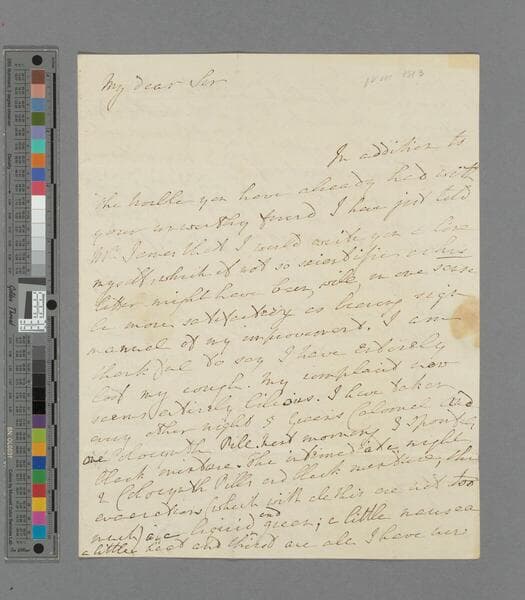 My dear Sir
In addition to
the trouble you have already had with
your unworthy friend I have just told
Mr. James that I would write you a line
myself, which if not so scientific as his
letter might have been, will, in one sense
be more satisfactory as being sign
manual of my improvement. I am
thankful to say I have entirely
lost my cough. My complaint now
seems entirely bilious. I have taken
every other night 5 Grains Calomel and
one Colocynth Pill, next morning 3 spoonfuls
black mixture. The intermediate night
2 Colocynth Pills and black mixture, the
evacuations (which with all this are not too
much) are liquid and green; a little nausea
a little heat and thirst are all I have now